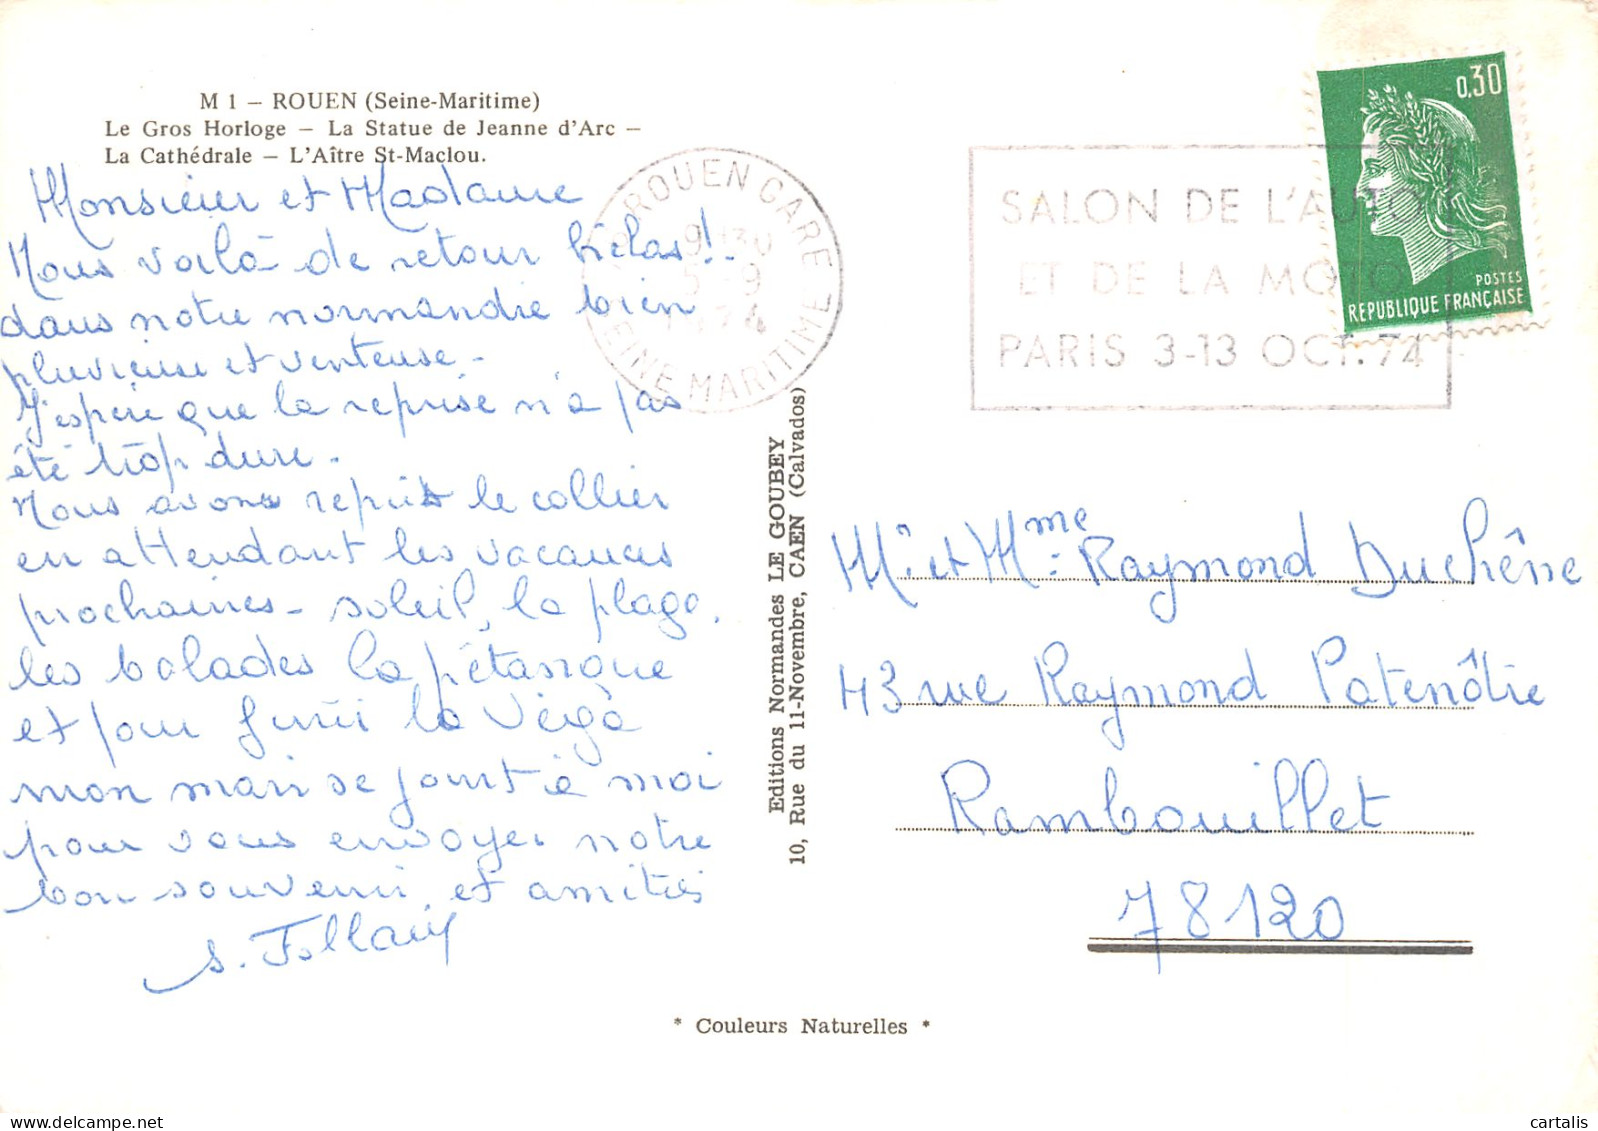 M 1 – ROUEN (Seine-Maritime)
Le Gros Horloge – La Statue de Jeanne d'Arc –
La Cathédrale – L'Aître St-Maclou.
Monsieur et Madame
Nous voilà de retour hélas!
dans notre normandie bien
pluvieuse et venteuse -
J'espère que la reprise n'a pas
été trop dure -
Nous avons repris le collier
en attendant les vacances
prochaines - soleil, la plage,
les balades la pétanque
et pour finir la Véga
mon mari se joint à moi
pour vous envoyer notre
bon souvenir et amitiés
S.
ROUEN GARE
9 H 30
5 - 9
1974
SEINE MARITIME
SALON DE L'AUTO
ET DE LA MOTO
PARIS 3-13 OCT. 74
0,30
POSTES
REPUBLIQUE FRANÇAISE
Editions Normandes LE GOUBEY
10, Rue du 11-Novembre, CAEN (Calvados)
Mr et Mme Raymond Duchêne
43 rue Raymond Patenôtre
Rambouillet
78120
* Couleurs Naturelles *
cartalis
delcampe.net